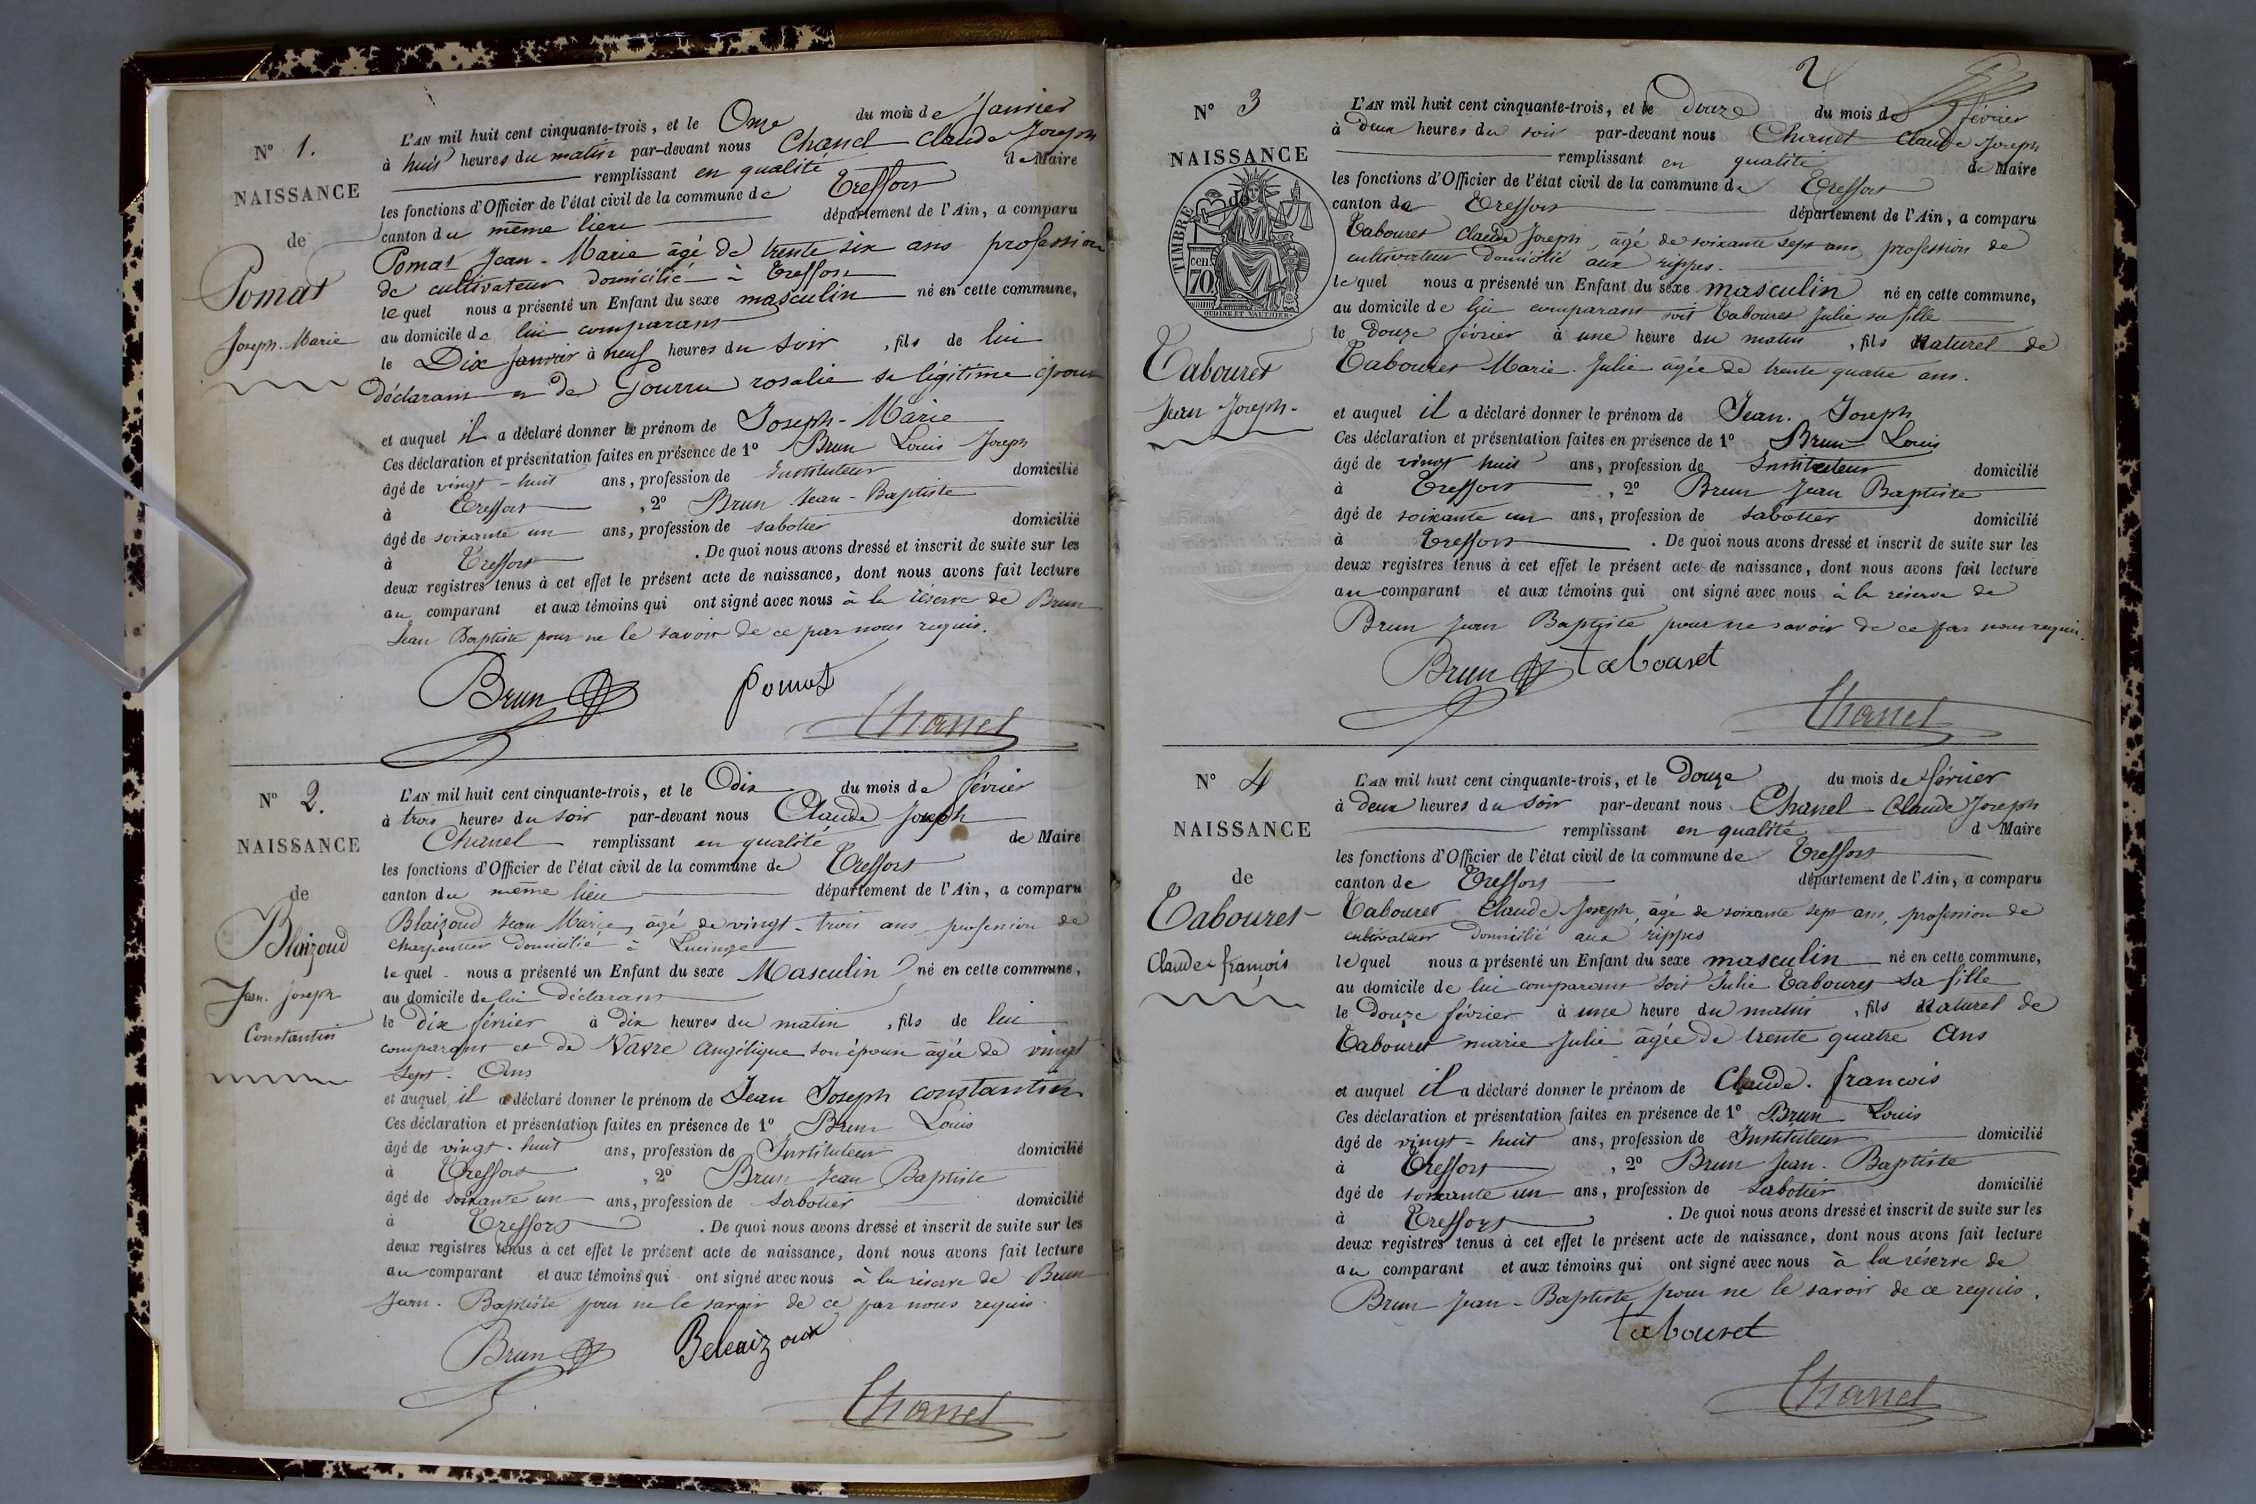 N° 1.
NAISSANCE
de
Pomat
Joseph-Marie
L'AN mil huit cent cinquante-trois, et le Onze du mois de Janvier
à huit heures du matin par-devant nous Chanel Claude Joseph
remplissant en qualité de Maire
les fonctions d'Officier de l'état civil de la commune de Treffort
canton du même lieu département de l'Ain, a comparu
Pomat Jean-Marie âgé de trente six ans profession
de cultivateur domicilié à Treffort
le quel nous a présenté un Enfant du sexe masculin né en cette commune,
au domicile de lui comparant
le Dix janvier à neuf heures du soir, fils de lui
déclarant et de Gourru rosalie sa légitime épouse
et auquel il a déclaré donner le prénom de Joseph-Marie
Ces déclaration et présentation faites en présence de 1° Brun Louis Joseph
âgé de vingt-huit ans, profession de Instituteur domicilié
à Treffort, 2° Brun Jean-Baptiste
âgé de soixante un ans, profession de sabotier domicilié
à Treffort. De quoi nous avons dressé et inscrit de suite sur les
deux registres tenus à cet effet le présent acte de naissance, dont nous avons fait lecture
au comparant et aux témoins qui ont signé avec nous à la réserve de Brun
Jean Baptiste pour ne le savoir de ce par nous requis.
Brun Pomat
Chanel
N° 2.
NAISSANCE
de
Blaizoud
Jean. Joseph
Constantin
L'AN mil huit cent cinquante-trois, et le dix du mois de février
à trois heures du soir par-devant nous Claude Joseph
Chanel remplissant en qualité de Maire
les fonctions d'Officier de l'état civil de la commune de Treffort
canton du même lieu département de l'Ain, a comparu
Blaizoud Jean Marie, âgé de vingt-trois ans profession de
charpentier domicilié à Lucinge
le quel nous a présenté un Enfant du sexe Masculin né en cette commune,
au domicile de lui déclarant
le dix février à dix heures du matin, fils de lui
comparant et de Vavre Angélique son épouse âgée de vingt
sept. Ans
et auquel il a déclaré donner le prénom de Jean Joseph constantin
Ces déclaration et présentation faites en présence de 1° Brun Louis
âgé de vingt-huit ans, profession de Instituteur domicilié
à Treffort, 2° Brun Jean Baptiste
âgé de soixante un ans, profession de sabotier domicilié
à Treffort. De quoi nous avons dressé et inscrit de suite sur les
deux registres tenus à cet effet le présent acte de naissance, dont nous avons fait lecture
au comparant et aux témoins qui ont signé avec nous à la réserve de Brun
Jean. Baptiste pour ne le savoir de ce par nous requis.
Brun Beleaizoux
Chanel
2
N° 3
NAISSANCE
de
TIMBRE
cen
70
OUDINÉ ET VAUTHIER
Tabouret
Jean Joseph-
L'AN mil huit cent cinquante-trois, et le douze du mois de février
à deux heures du soir par-devant nous Chanel Claude Joseph
remplissant en qualité de Maire
les fonctions d'Officier de l'état civil de la commune de Treffort
canton de Treffort département de l'Ain, a comparu
Tabouret Claude Joseph, âgé de soixante sept ans, profession de
cultivateur domicilié aux rippes.
le quel nous a présenté un Enfant du sexe masculin né en cette commune,
au domicile de lui comparant soit Tabouret Julie sa fille
le douze février à une heure du matin, fils naturel de
Tabouret Marie. Julie âgée de trente quatre ans.
et auquel il a déclaré donner le prénom de Jean. Joseph
Ces déclaration et présentation faites en présence de 1° Brun Louis
âgé de vingt huit ans, profession de Instituteur domicilié
à Treffort, 2° Brun Jean Baptiste
âgé de soixante un ans, profession de sabotier domicilié
à Treffort. De quoi nous avons dressé et inscrit de suite sur les
deux registres tenus à cet effet le présent acte de naissance, dont nous avons fait lecture
au comparant et aux témoins qui ont signé avec nous à la réserve de
Brun Jean Baptiste pour ne savoir de ce par nous requis.
Brun tabouret
Chanel
N° 4
NAISSANCE
de
Tabouret
Claude françois
L'AN mil huit cent cinquante-trois, et le Douze du mois de février
à deux heures du soir par-devant nous Chanel Claude Joseph
remplissant en qualité d Maire
les fonctions d'Officier de l'état civil de la commune de Treffort
canton de Treffort département de l'Ain, a comparu
Tabouret Claude Joseph, âgé de soixante sept ans, profession de
cultivateur domicilié aux rippes
le quel nous a présenté un Enfant du sexe masculin né en cette commune,
au domicile de lui comparant soit Julie Tabouret sa fille
le Douze février à une heure du matin, fils naturel de
Tabouret marie Julie âgée de trente quatre Ans
et auquel il a déclaré donner le prénom de Claude. francois
Ces déclaration et présentation faites en présence de 1° Brun Louis
âgé de vingt-huit ans, profession de Instituteur domicilié
à Treffort, 2° Brun Jean. Baptiste
âgé de soixante un ans, profession de sabotier domicilié
à Treffort. De quoi nous avons dressé et inscrit de suite sur les
deux registres tenus à cet effet le présent acte de naissance, dont nous avons fait lecture
au comparant et aux témoins qui ont signé avec nous à la réserve de
Brun Jean-Baptiste pour ne le savoir de ce requis.
tabouret
Chanel